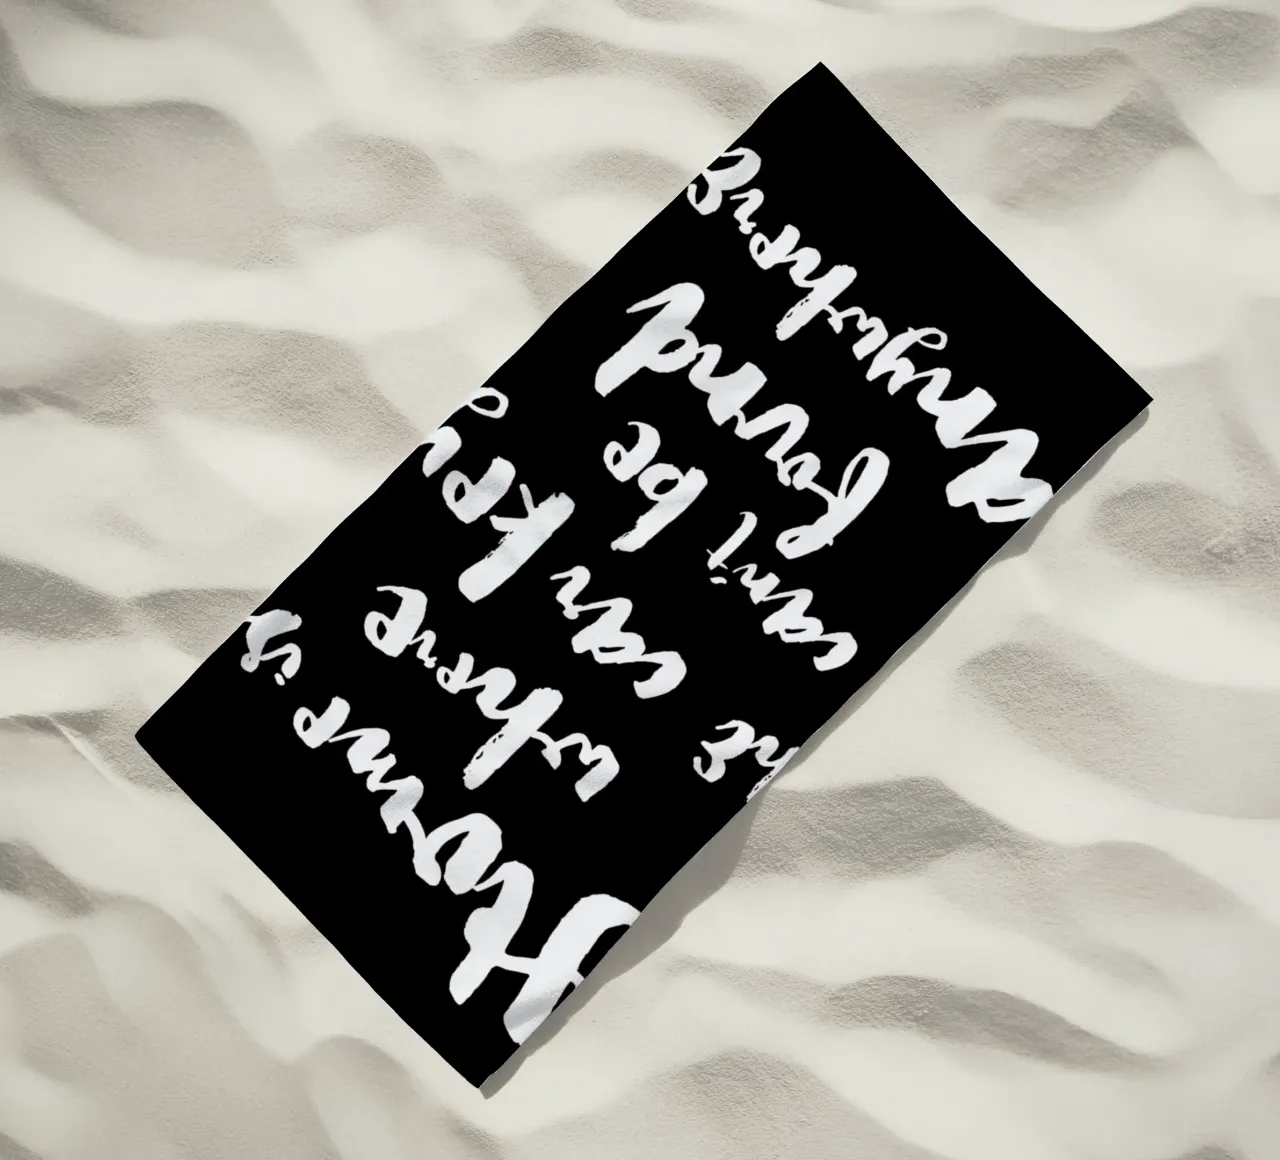 Home is
where
he car key
can't be
found
anywhere